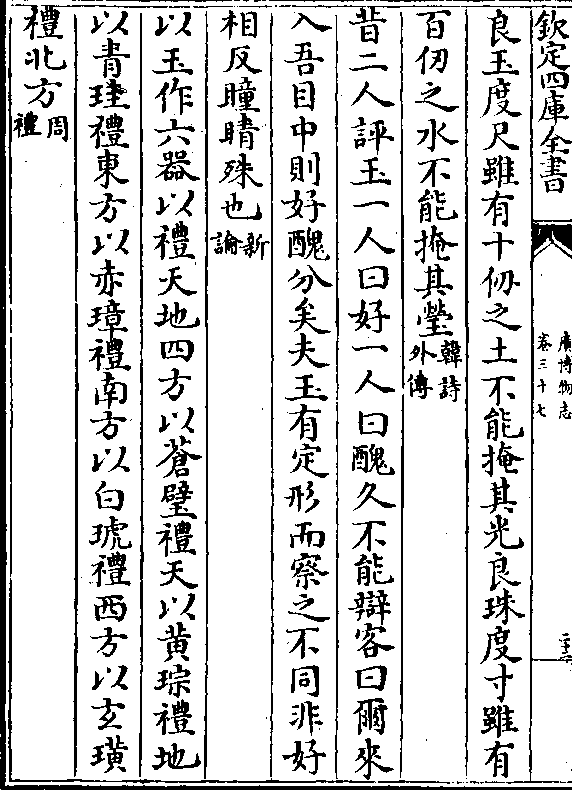 欽定四庫全書
廣博物志
卷三十七
良玉度尺雖有十仞之土不能掩其光良珠度寸雖有
百仞之水不能掩其瑩韓詩外傳
昔二人評玉一人曰好一人曰醜久不能辯客曰爾來
入吾目中則好醜分矣夫玉有定形而察之不同非好
相反瞳睛殊也新論
以玉作六器以禮天地四方以蒼璧禮天以黃琮禮地
以青珪禮東方以赤璋禮南方以白琥禮西方以玄璜
禮北方周禮